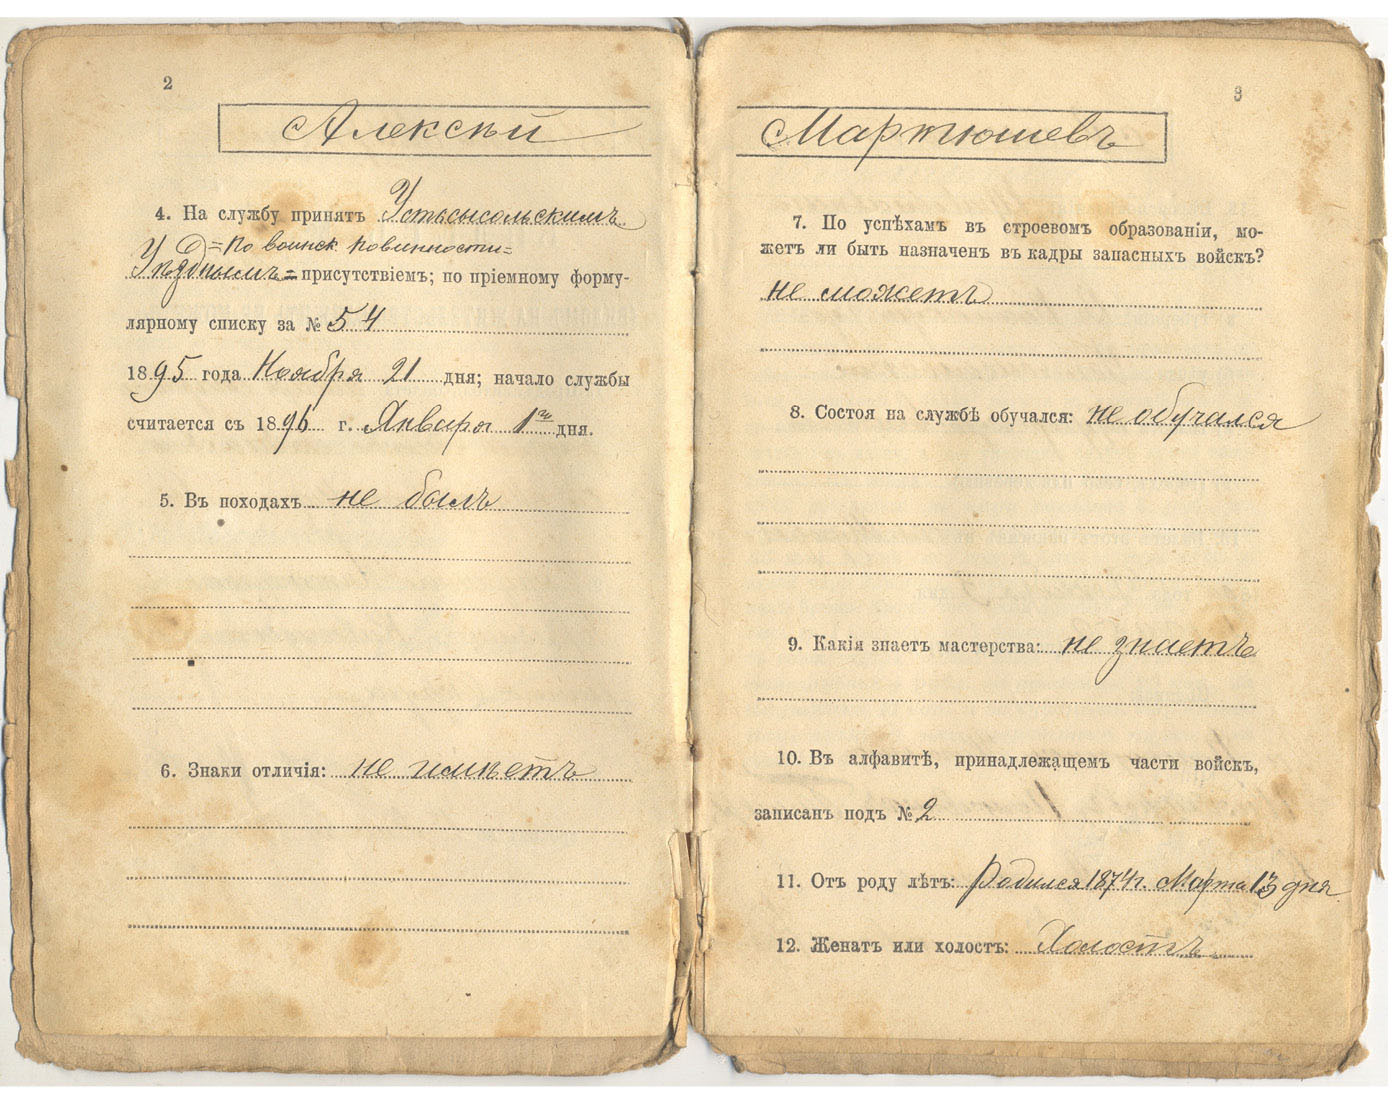 2
Алексѣй
4. На службу принятъ Устьсысольскимъ
Уѣзднымъ =по воинск повинности=
присутствіемъ; по пріемному форму-
лярному списку за № 54
1895 года Ноября 21 дня; начало службы
считается съ 1896 г. Января 1го дня.
5. Въ походахъ не былъ
6. Знаки отличія: не имѣетъ
3
Мартюшевъ
7. По успѣхамъ въ строевомъ образованіи, мо-
жетъ ли быть назначенъ въ кадры запасныхъ войскъ?
не можетъ
8. Состоя на службѣ обучался: не обучался
9. Какія знаетъ мастерства: не знаетъ
10. Въ алфавитѣ, принадлежащемъ части войскъ,
записанъ подъ № 2
11. Отъ роду лѣтъ: Родился 1874 г. Марта 13 дня
12. Женатъ или холостъ: Холостъ